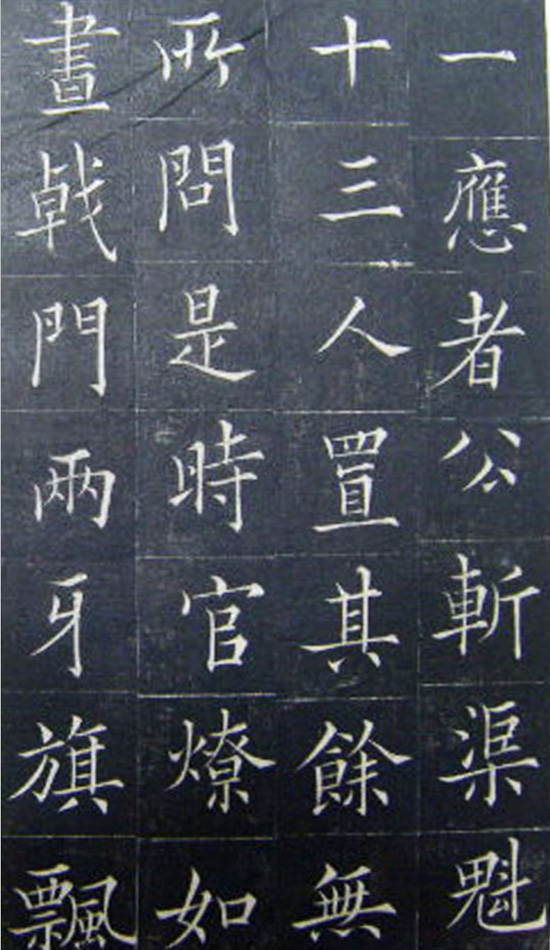 一應者公斬渠魁
十三人置其餘無
所問是時官燎如
晝戟門兩牙旗飄